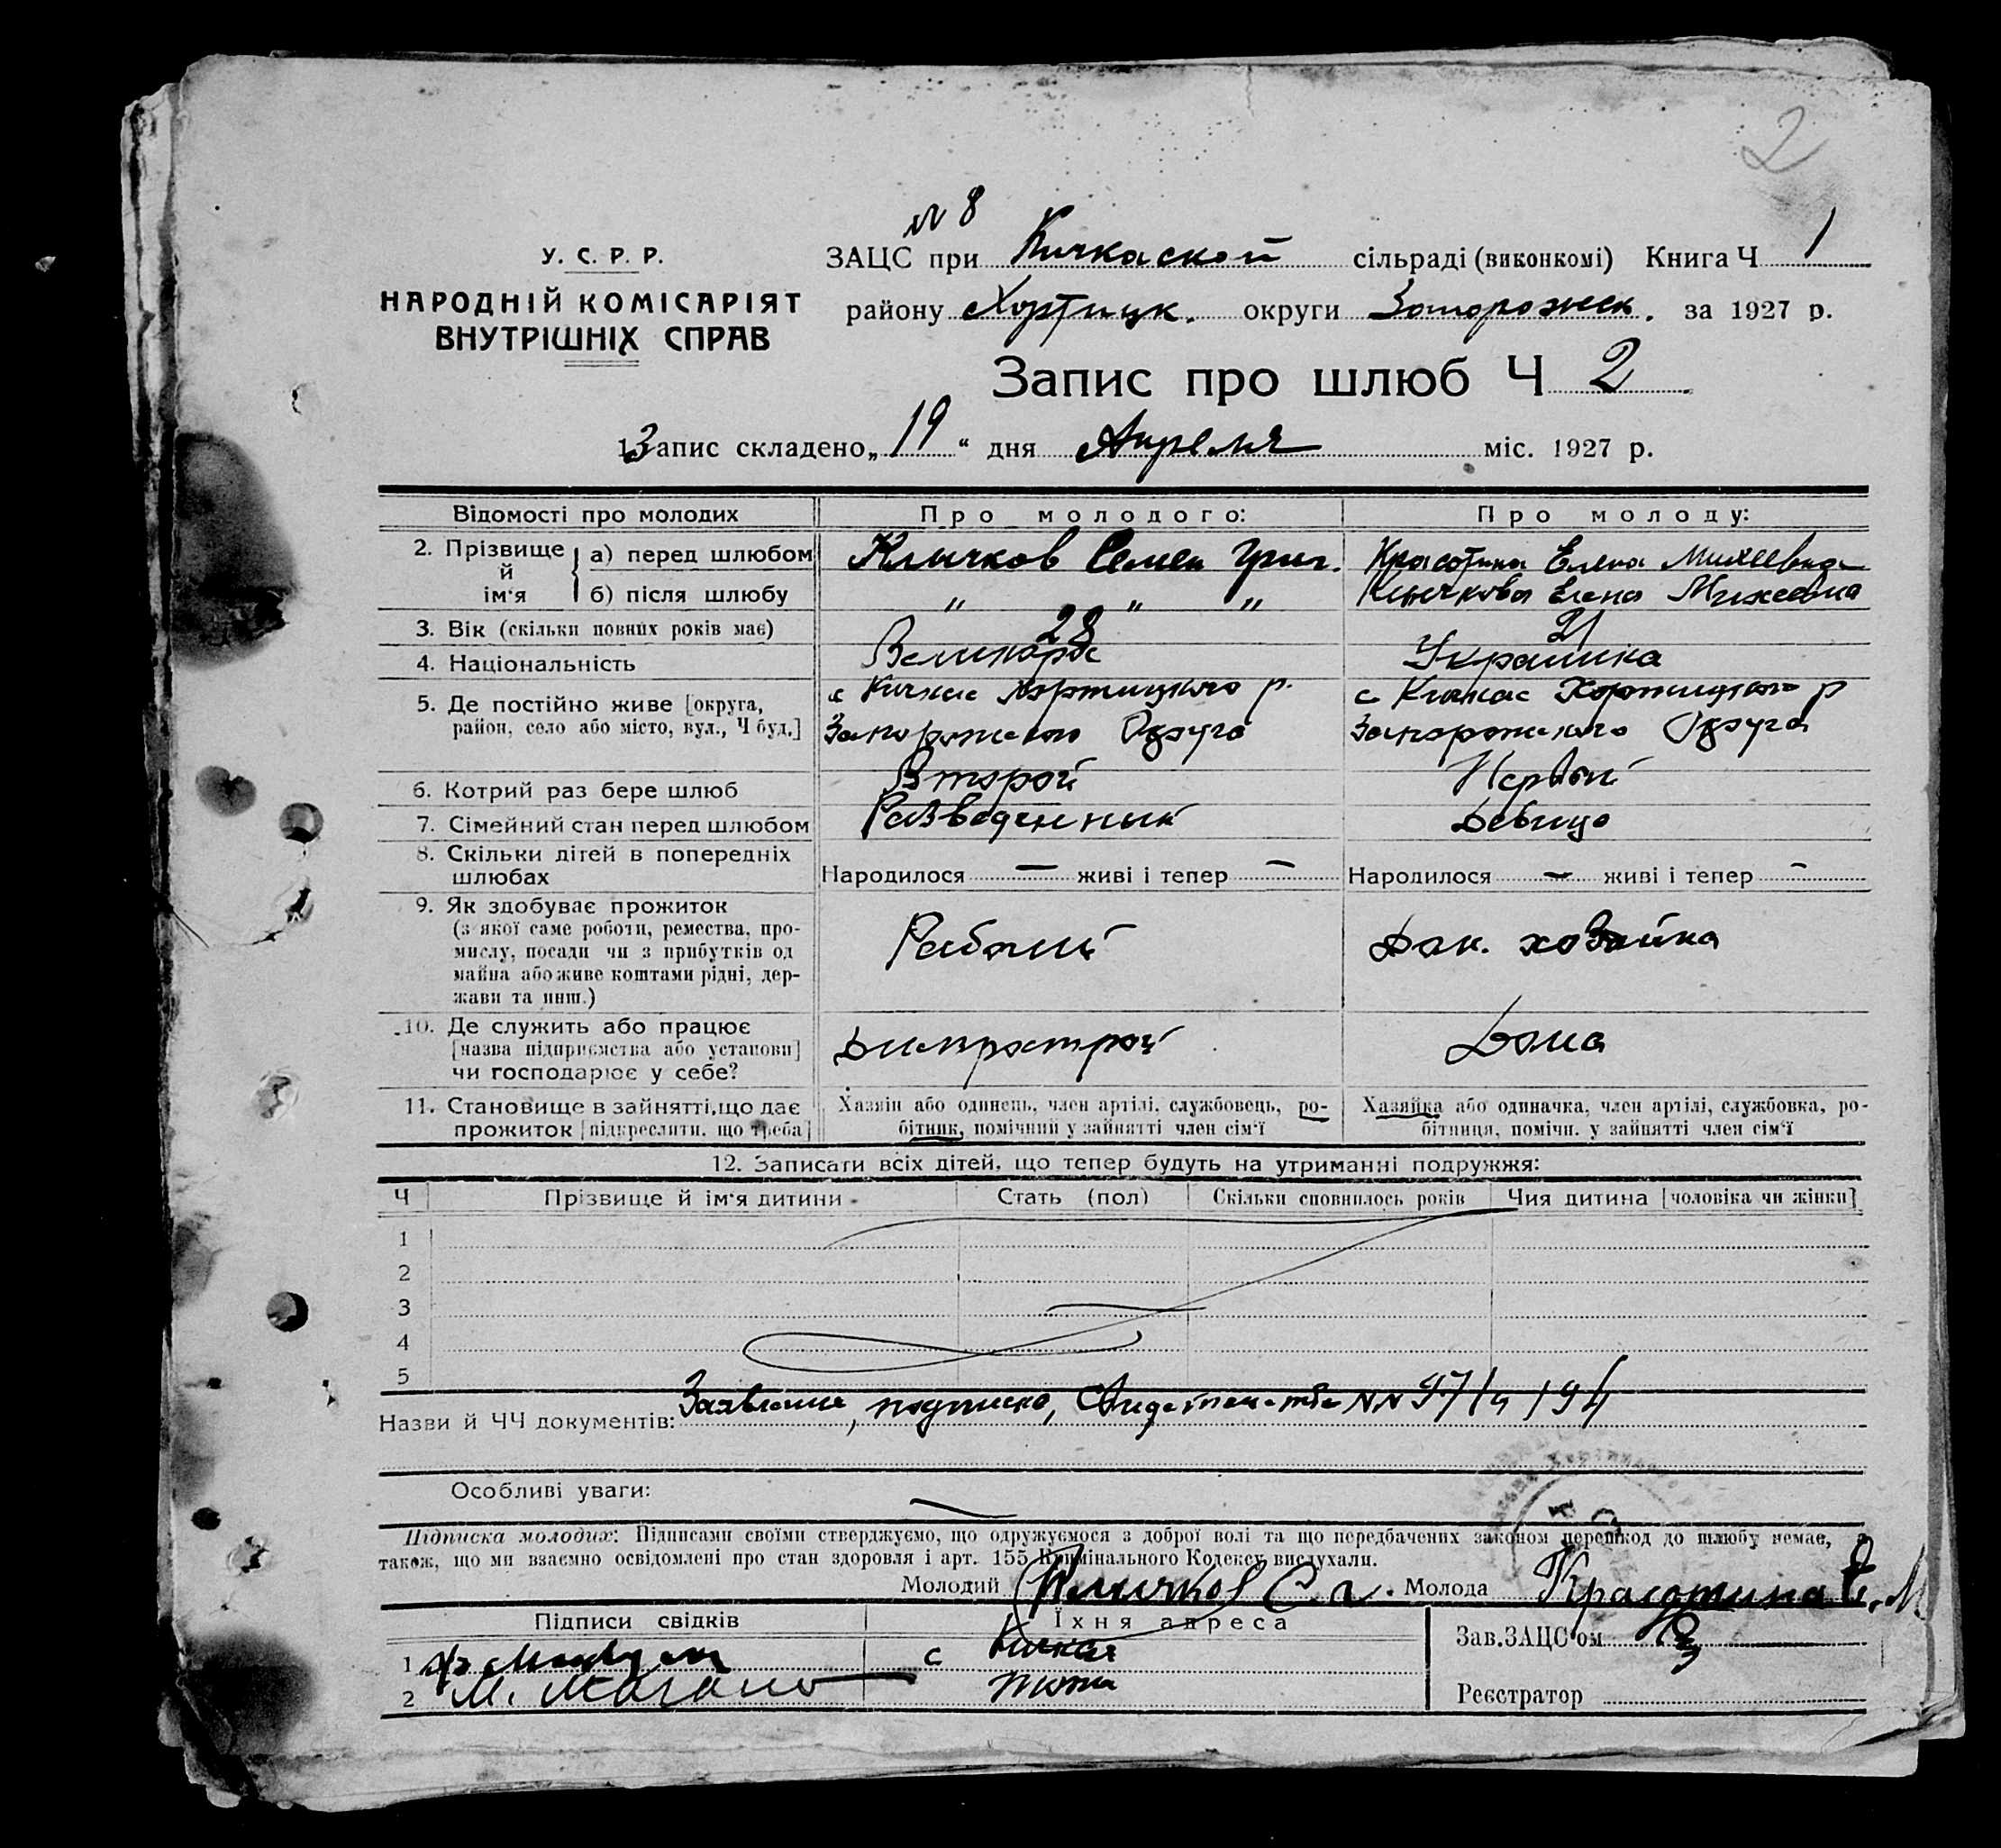 2
№ 8
У. С. Р. Р.
НАРОДНІЙ КОМІСАРІЯТ
ВНУТРІШНІХ СПРАВ
ЗАЦС при Кичкаской сільраді (виконкомі) Книга Ч 1
району Хортицк. округи Запорожск. за 1927 р.
Запис про шлюб Ч 2
1. Запис складено „19“ дня Апреля міс. 1927 р.
Відомості про молодих Про молодого: Про молоду:
2. Прізвище й ім'я а) перед шлюбом Клычков Семен Григ. Красотина Елена Михеевна
б) після шлюбу " " " Клычкова Елена Михеевна
3. Вік (скільки повних років має) 28 21
4. Національність Великорос Украинка
5. Де постійно живе [округа, с Кичкас Хортицкого р. с Кичкас Хортицкого р
район, село або місто, вул., Ч буд.] Запорожского Округа Запорожского Округа
6. Котрий раз бере шлюб Второй Первый
7. Сімейний стан перед шлюбом Разведенный Девица
8. Скільки дітей в попередніх
шлюбах Народилося — живі і тепер — Народилося — живі і тепер —
9. Як здобуває прожиток
(з якої саме роботи, ремества, про-
мислу, посади чи з прибутків од Рабочий Дом. хозяйка
майна або живе коштами рідні, дер-
жави та инш.)
10. Де служить або працює
[назва підприємства або установи] Днепрострой Дома
чи господарює у себе?
11. Становище в зайнятті, що дає Хазяїн або одинець, член артілі, службовець, ро- Хазяйка або одиначка, член артілі, службовка, ро-
прожиток [підкреслити, що треба] бітник, помічний у зайнятті член сім'ї бітниця, помічн. у зайнятті член сім'ї
12. Записати всіх дітей, що тепер будуть на утриманні подружжя:
Ч Прізвище й ім'я дитини Стать (пол) Скільки сповнилось років Чия дитина [чоловіка чи жінки]
1
2
3
4
5
Назви й ЧЧ документів: Заявление, подписка, Свидетельства NN 97/4 194
Особливі уваги: —
Підписка молодих: Підписами своїми стверджуємо, що одружуємося з доброї волі та що передбачених законом перешкод до шлюбу немає,
також, що ми взаємно освідомлені про стан здоровля і арт. 155 Кримінального Кодексу вислухали.
Молодий Клычков С. Г. Молода Красотина Е. М
Підписи свідків Їхня адреса Зав. ЗАЦС'ом
1 с Кичкас
2 М. тоже Реєстратор